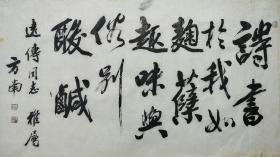 詩書
於我如
麴蘖
趣味與
俗别
酸鹹
遠傳同志 雅屬
方南